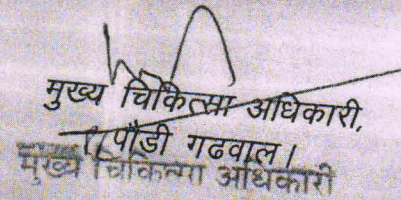 मुख्य चिकित्सा अधिकारी,
पौडी गढवाल।
मुख्य चिकित्सा अधिकारी